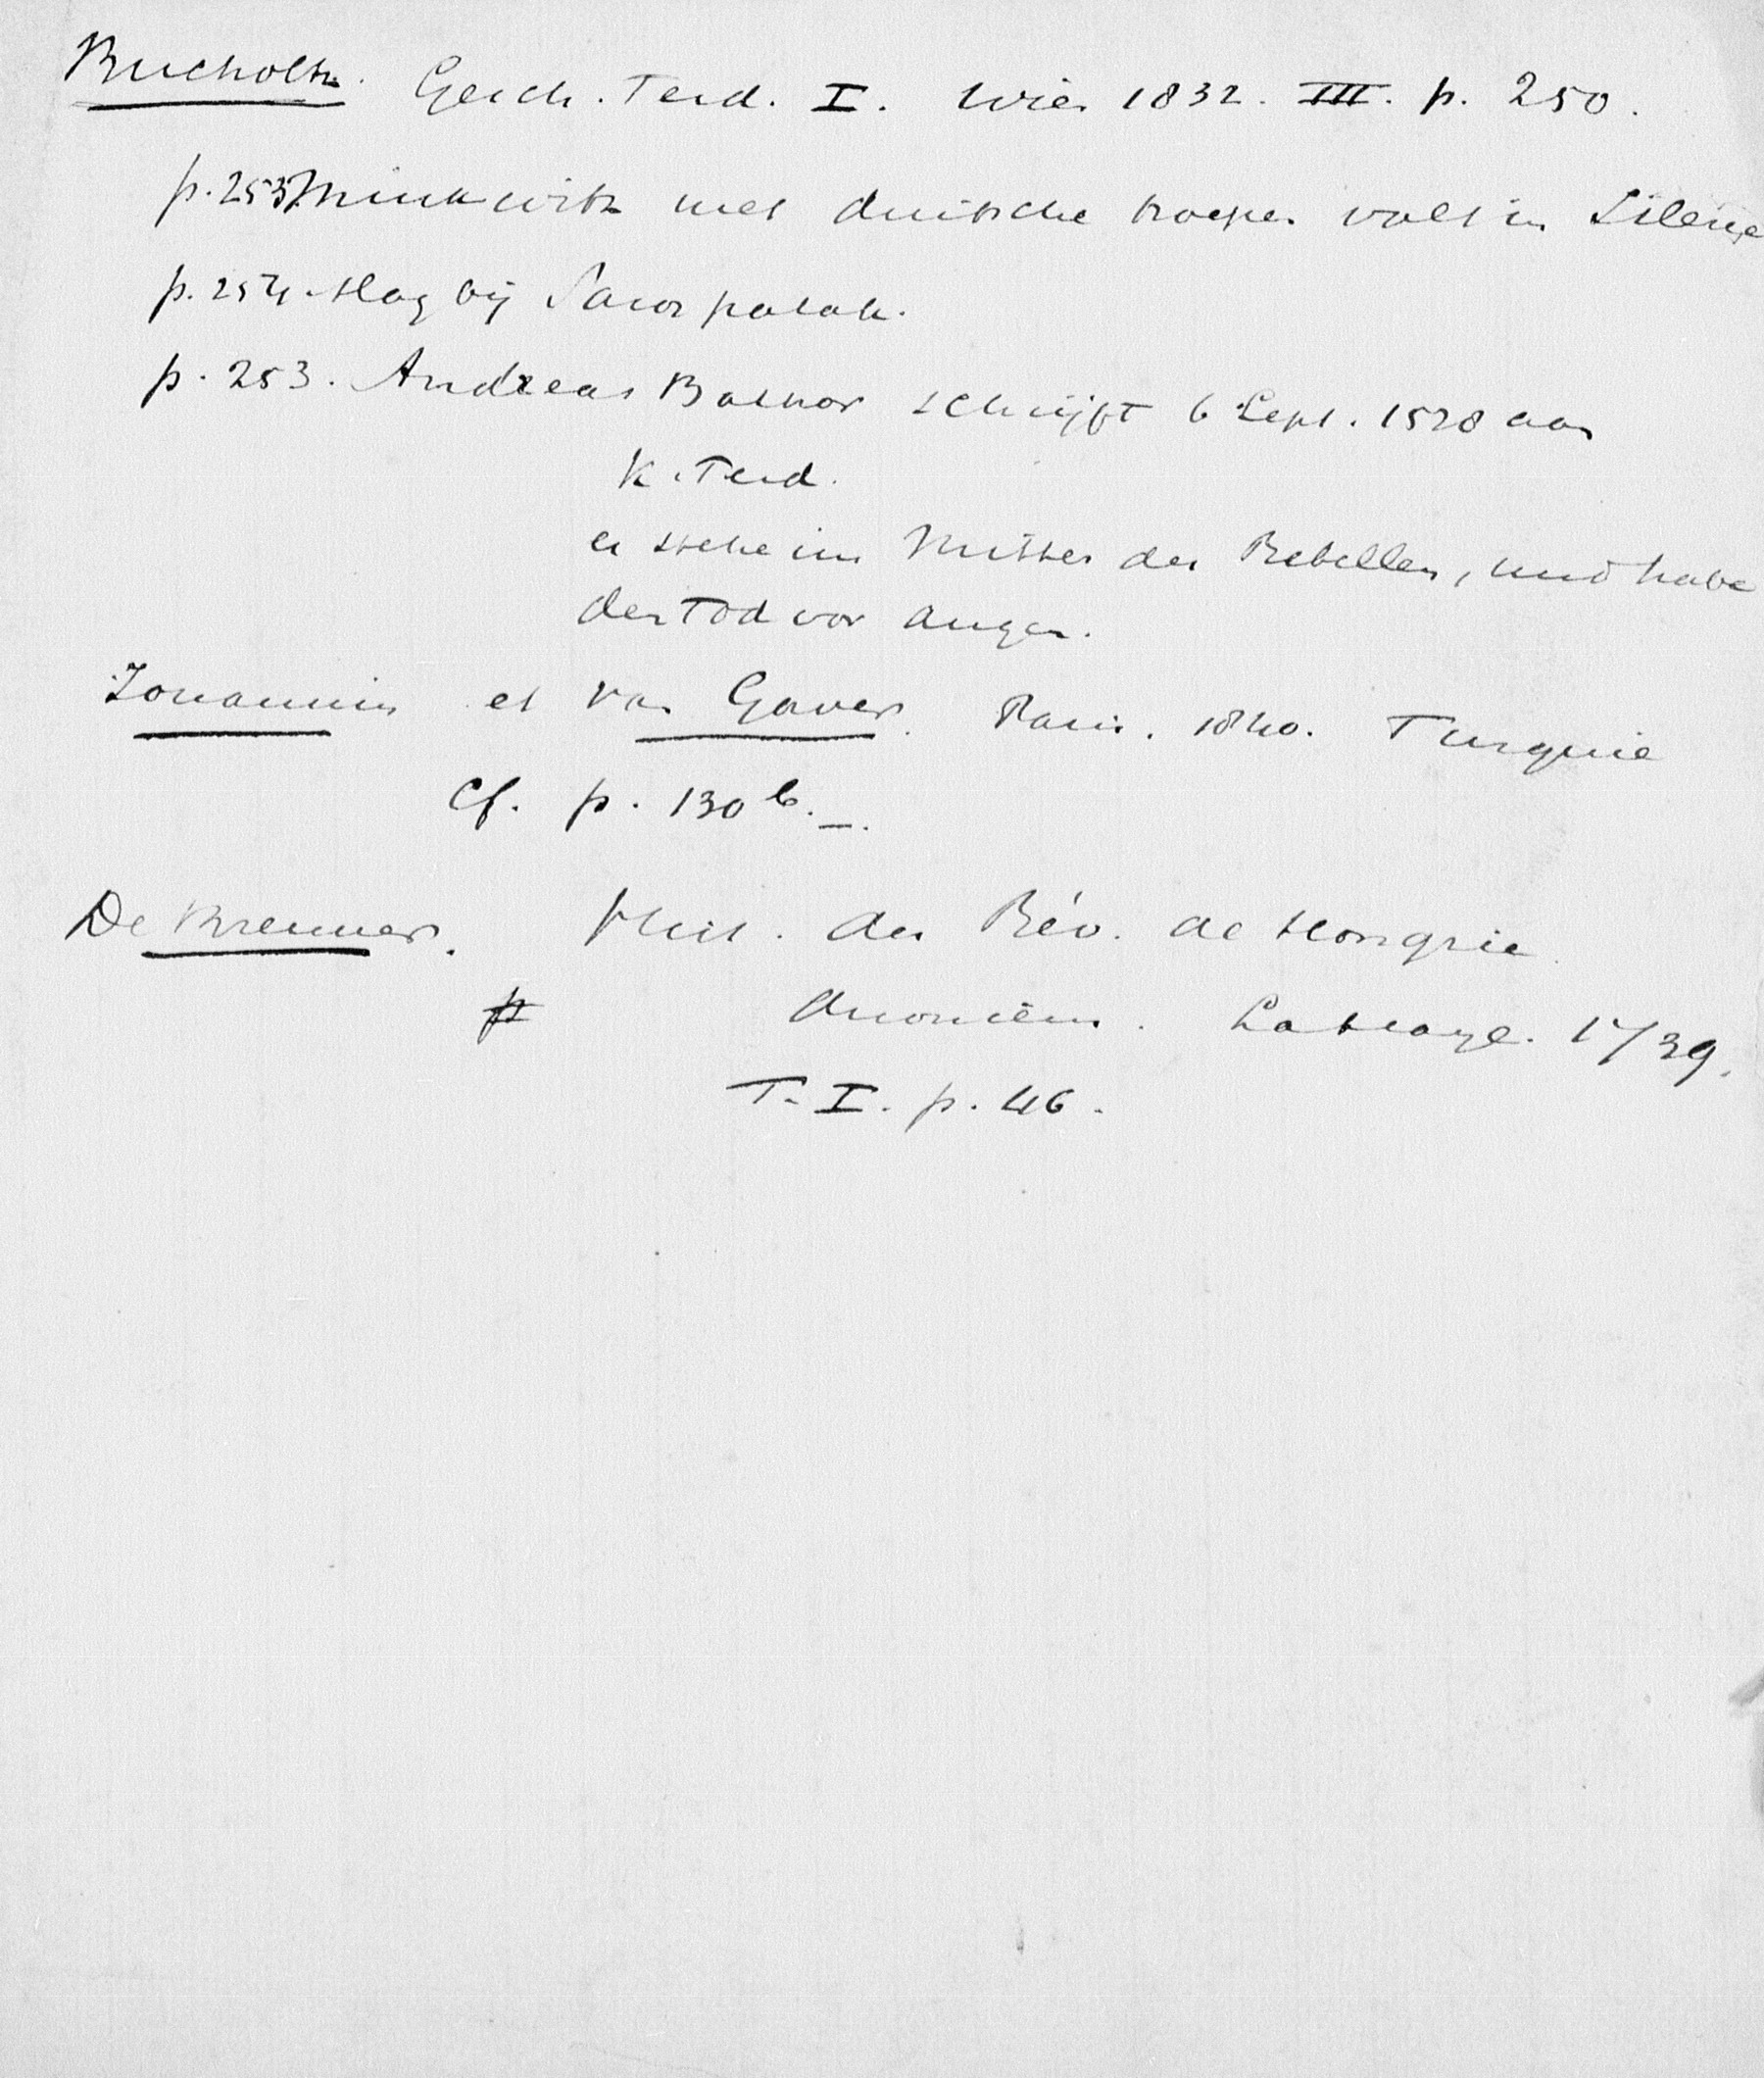 Bucholtz. Gesch. Ferd. I. Wien 1832. III. p. 250.
p. 253 Minkwitz met duitsche troepen valt in Silezië
p. 254. slag bij Saros patak.
p. 253. Andreas Bathor schrijft 6 Sept. 1528 aan
K. Ferd.
er stehe im Mitten der Rebellen, und habe
den Tod vor Augen.
Jouannin et Van Gaver. Paris. 1840. Turquie
Cf. p. 130 b.
De Brenner. Hist. des Rév. de Hongrie.
p Anoniem. La Haye. 1739.
T. I. p. 46.